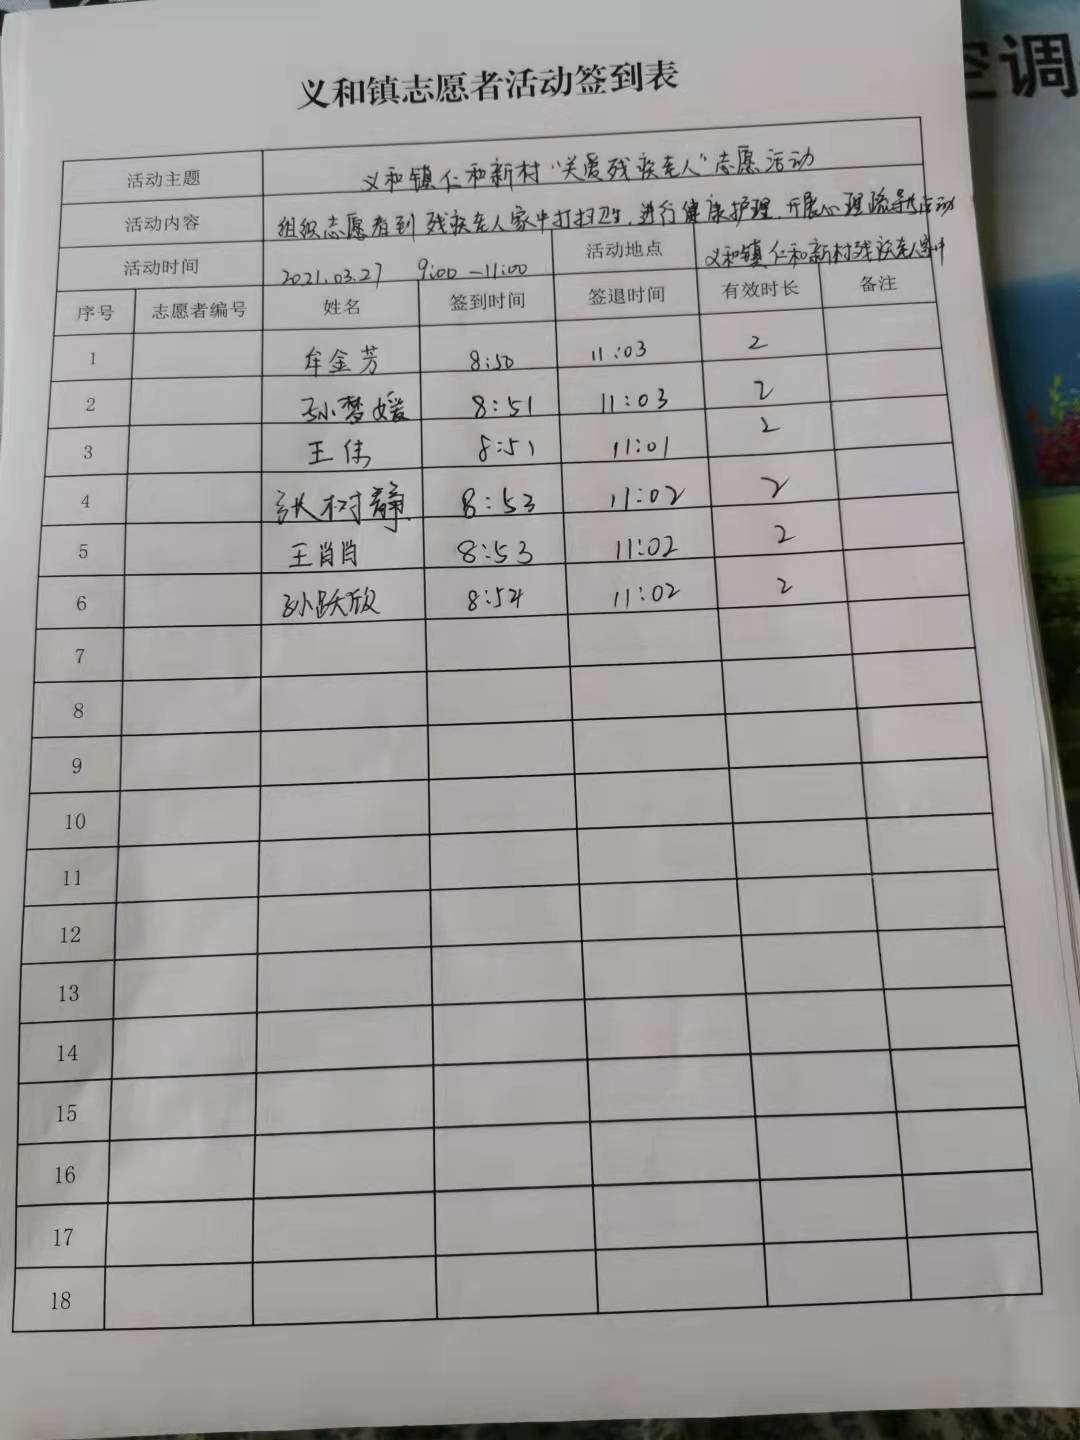 义和镇志愿者活动签到表
空调
活动主题 义和镇仁和新村“关爱残疾老人”志愿活动
活动内容 组织志愿者到残疾老人家中打扫卫生、进行健康护理、开展心理疏导活动
活动时间 2021.03.27 9:00-11:00 活动地点 义和镇仁和新村残疾老人家中
序号 志愿者编号 姓名 签到时间 签退时间 有效时长 备注
1 牟金芳 8:50 11:03 2
2 孙梦媛 8:51 11:03 2
3 王伟 8:51 11:01 2
4 张树静 8:53 11:02 2
5 王肖肖 8:53 11:02 2
6 孙跃欣 8:54 11:02 2
7
8
9
10
11
12
13
14
15
16
17
18